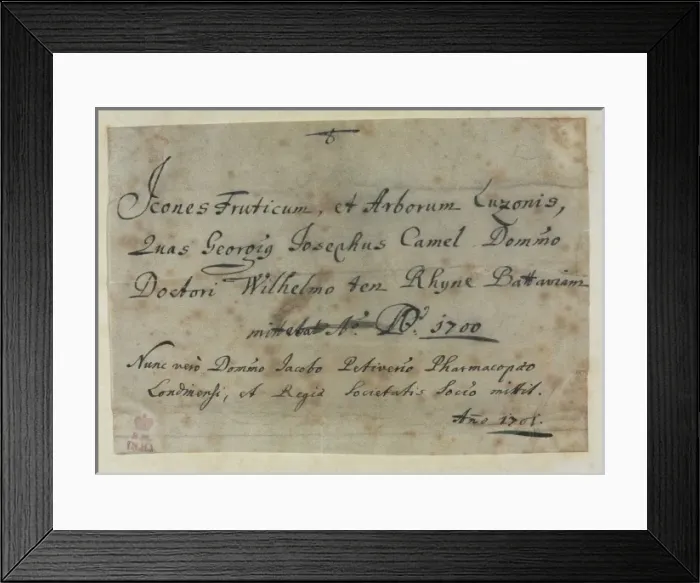 Icones Fruticum, et Arborum Luzonis,
Quas Georgig Iosephus Camel Dommo
Doctori Wilhelmo ten Rhyne Battaviam
mittebat Aº. 1700
Nunc verò Dommo Jacobo Petiverio Pharmacopæo
Londinensi, et Regiæ Societatis Socio mittit.
Año 1701.